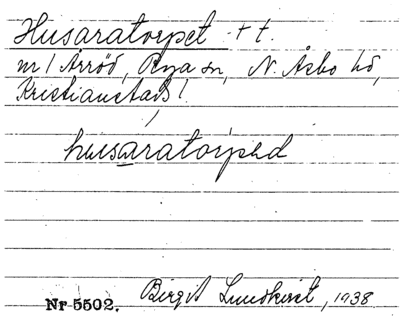 Husaratorpet tt.
nr 1 Årröd, Rya sn, N. Åsbo hd,
Kristianstads l.
husaratorpəd
Nr 5502. Birgit Lundkvist, 1938